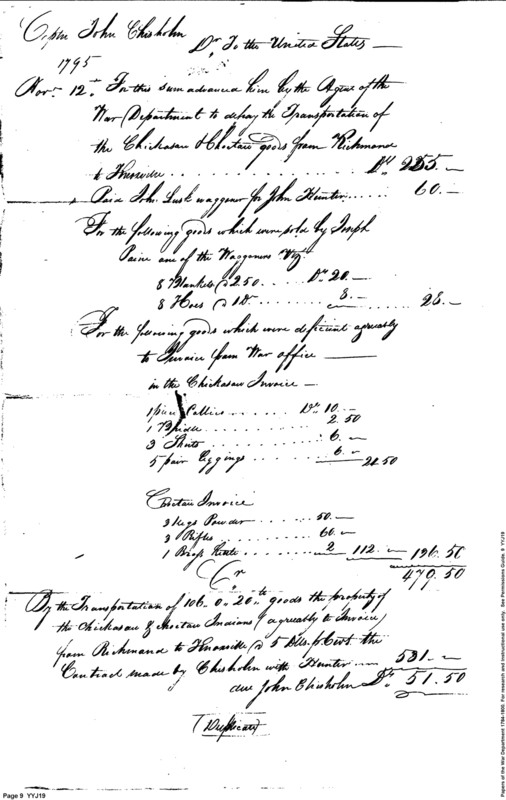 Capn John Chisholm
Dr. To the United States —
1795
Novr. 12th. For this sum advanced him by the Agent of the
War Department to defray the Transportation of
the Chickasaw & Choctaw goods from Richmond
to Knoxville . . . . . . . . . . Drs 255. —
Paid John Lusk waggoner for John Hunter . . . . . 60. —
For the following goods which were sold by Joseph
Paine one of the Waggoners Vizt.
8 Blankets @ 2.50 . . . . . Drs 20. —
8 Hoes @ 1 Dr . . . . . . 8. — 28. —
For the following goods which were deficient agreeably
to Invoice from War office —
in the Chickasaw Invoice —
1 piece Callico . . . . . Drs 10. —
1 Bridle . . . . . . . 2.50
3 Shirts . . . . . . . 6. —
5 pair leggings . . . . . . 6. — 24.50
Choctaw Invoice
2 Kegs Powder . . . . . . 50. —
3 Rifles . . . . . . 60. —
1 Brass Kettle . . . 2 112. — 136.50
479.50
Cr.
By the Transportation of 106.0.20 goods the property of
the Chickasaw & Choctaw Indians (agreeably to Invoice)
from Richmond to Knoxville @ 5 Dlls. Cwt. the
Contract made by Chisholm with Hunter . . . 531. —
due John Chisholm Drs. 51.50
(Duplicate)
Page 9 YYJ19
Papers of the War Department 1784-1800. For research and instructional use only. See Permissions Guide. 9 YYJ19